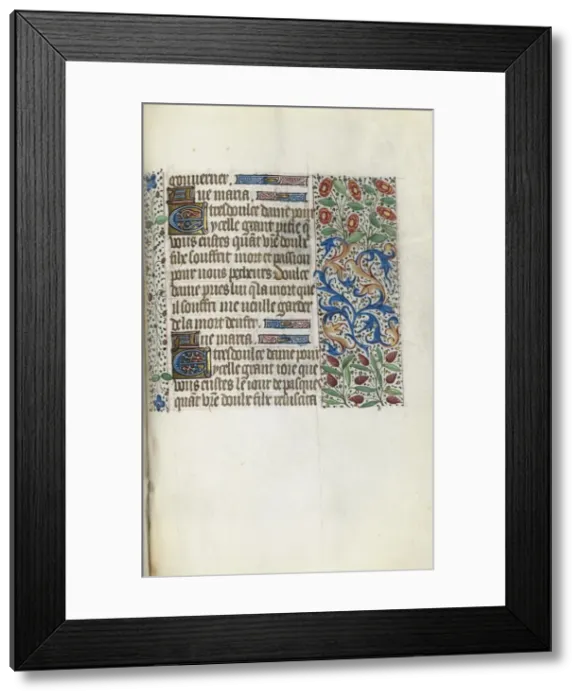 gouuerner.
Aue maria.
E tresdoulce dame pour
ycelle grant pitie q
vous eustes quāt vrē doulx
filz souffrit mort et passion
pour nous pecheurs doulce
dame pries lui q̄ la mort que
il souffri me vueille garder
de la mort denfer.
Aue maria.
E tresdoulce dame pour
ycelle grant ioie que
vous eustes le iour de pasques
quāt vrē doulx filz resuscita